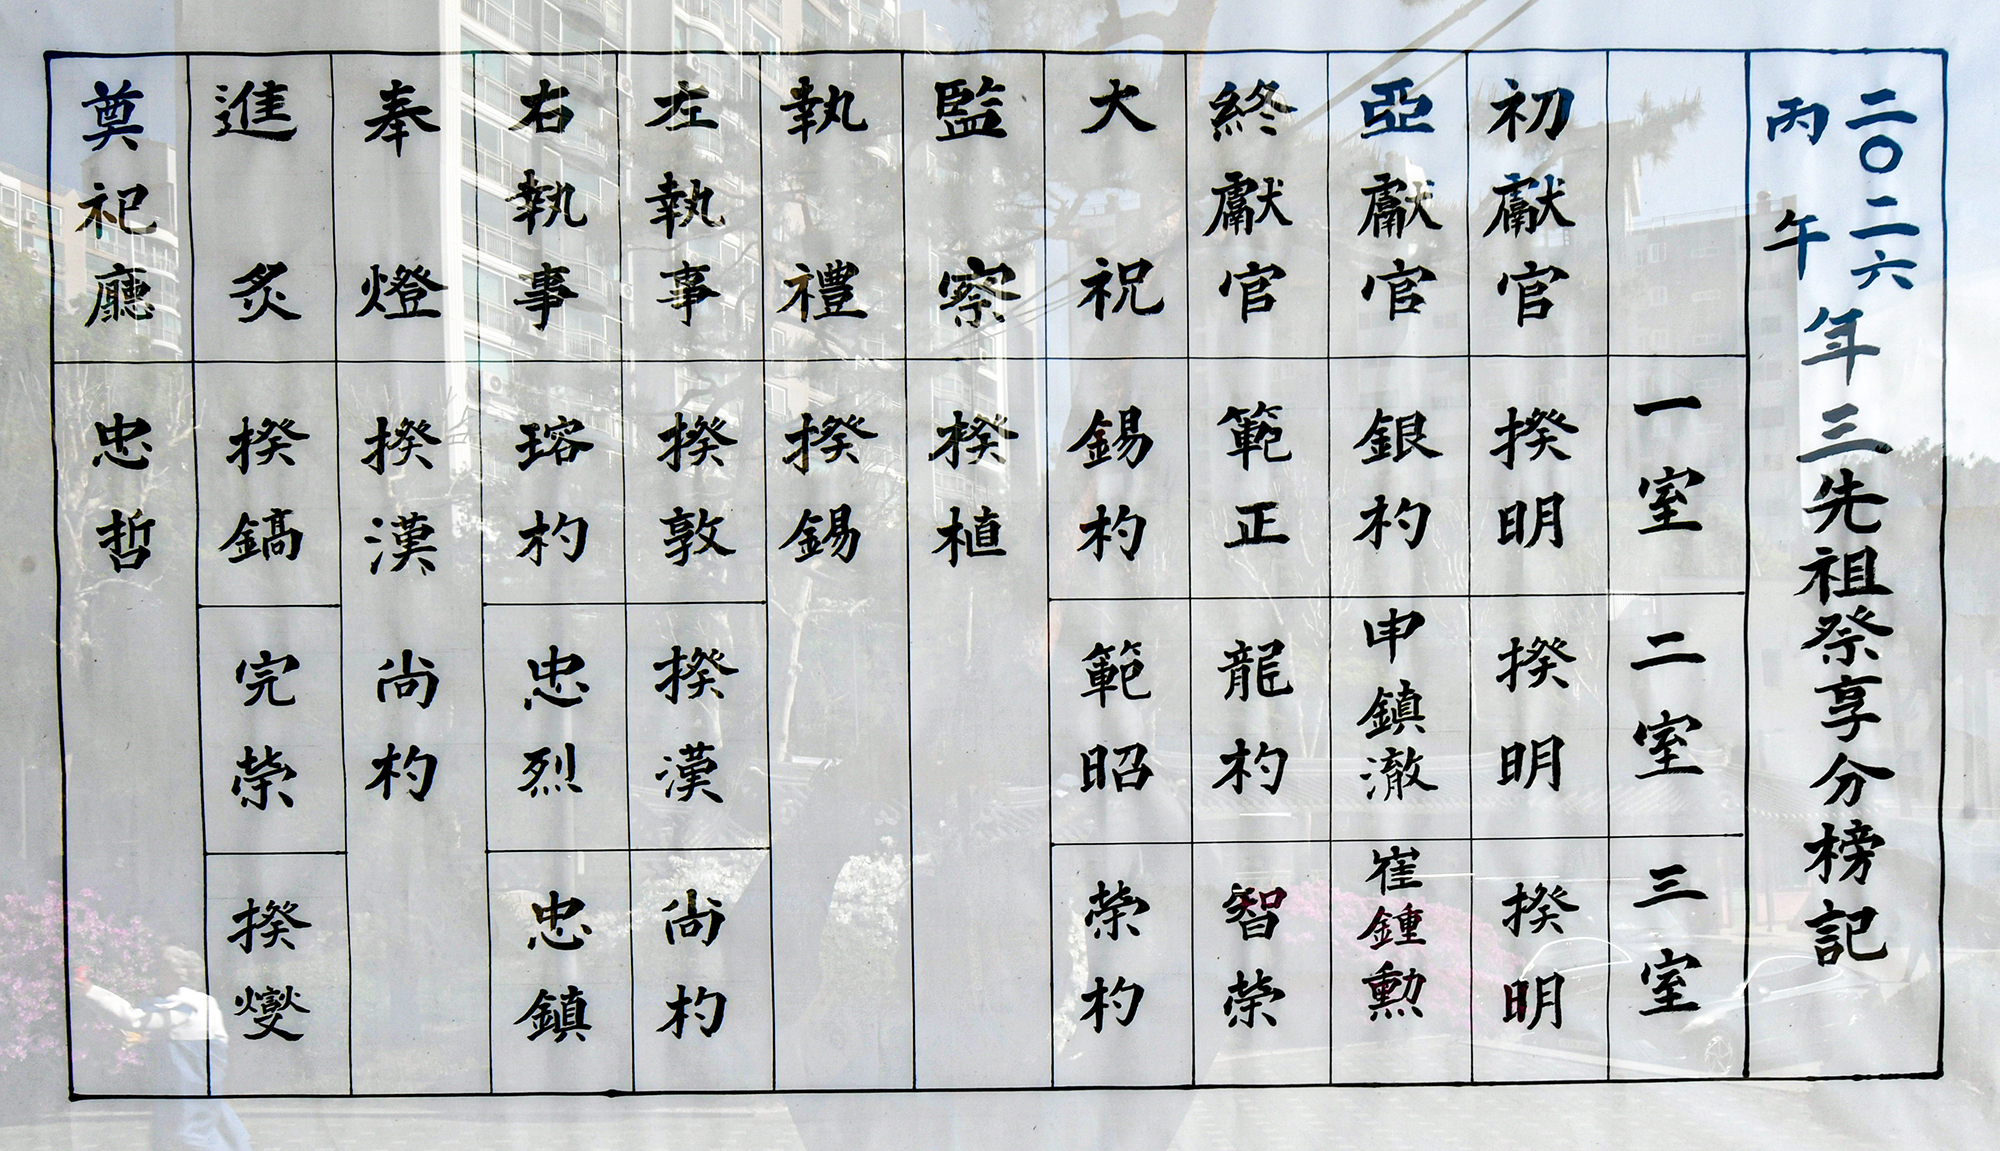 二〇二六
丙午
年三先祖祭享分榜記
一室
二室
三室
初獻官
揆明
揆明
揆明
亞獻官
銀杓
申鎮澈
崔鍾勲
終獻官
範正
龍杓
智榮
大祝
錫杓
範昭
榮杓
監察
揆植
執禮
揆錫
左執事
揆敦
揆漢
尚杓
右執事
瑢杓
忠烈
忠鎮
奉燈
揆漢
尚杓
進炙
揆鎬
完榮
揆燮
奠祀廳
忠哲